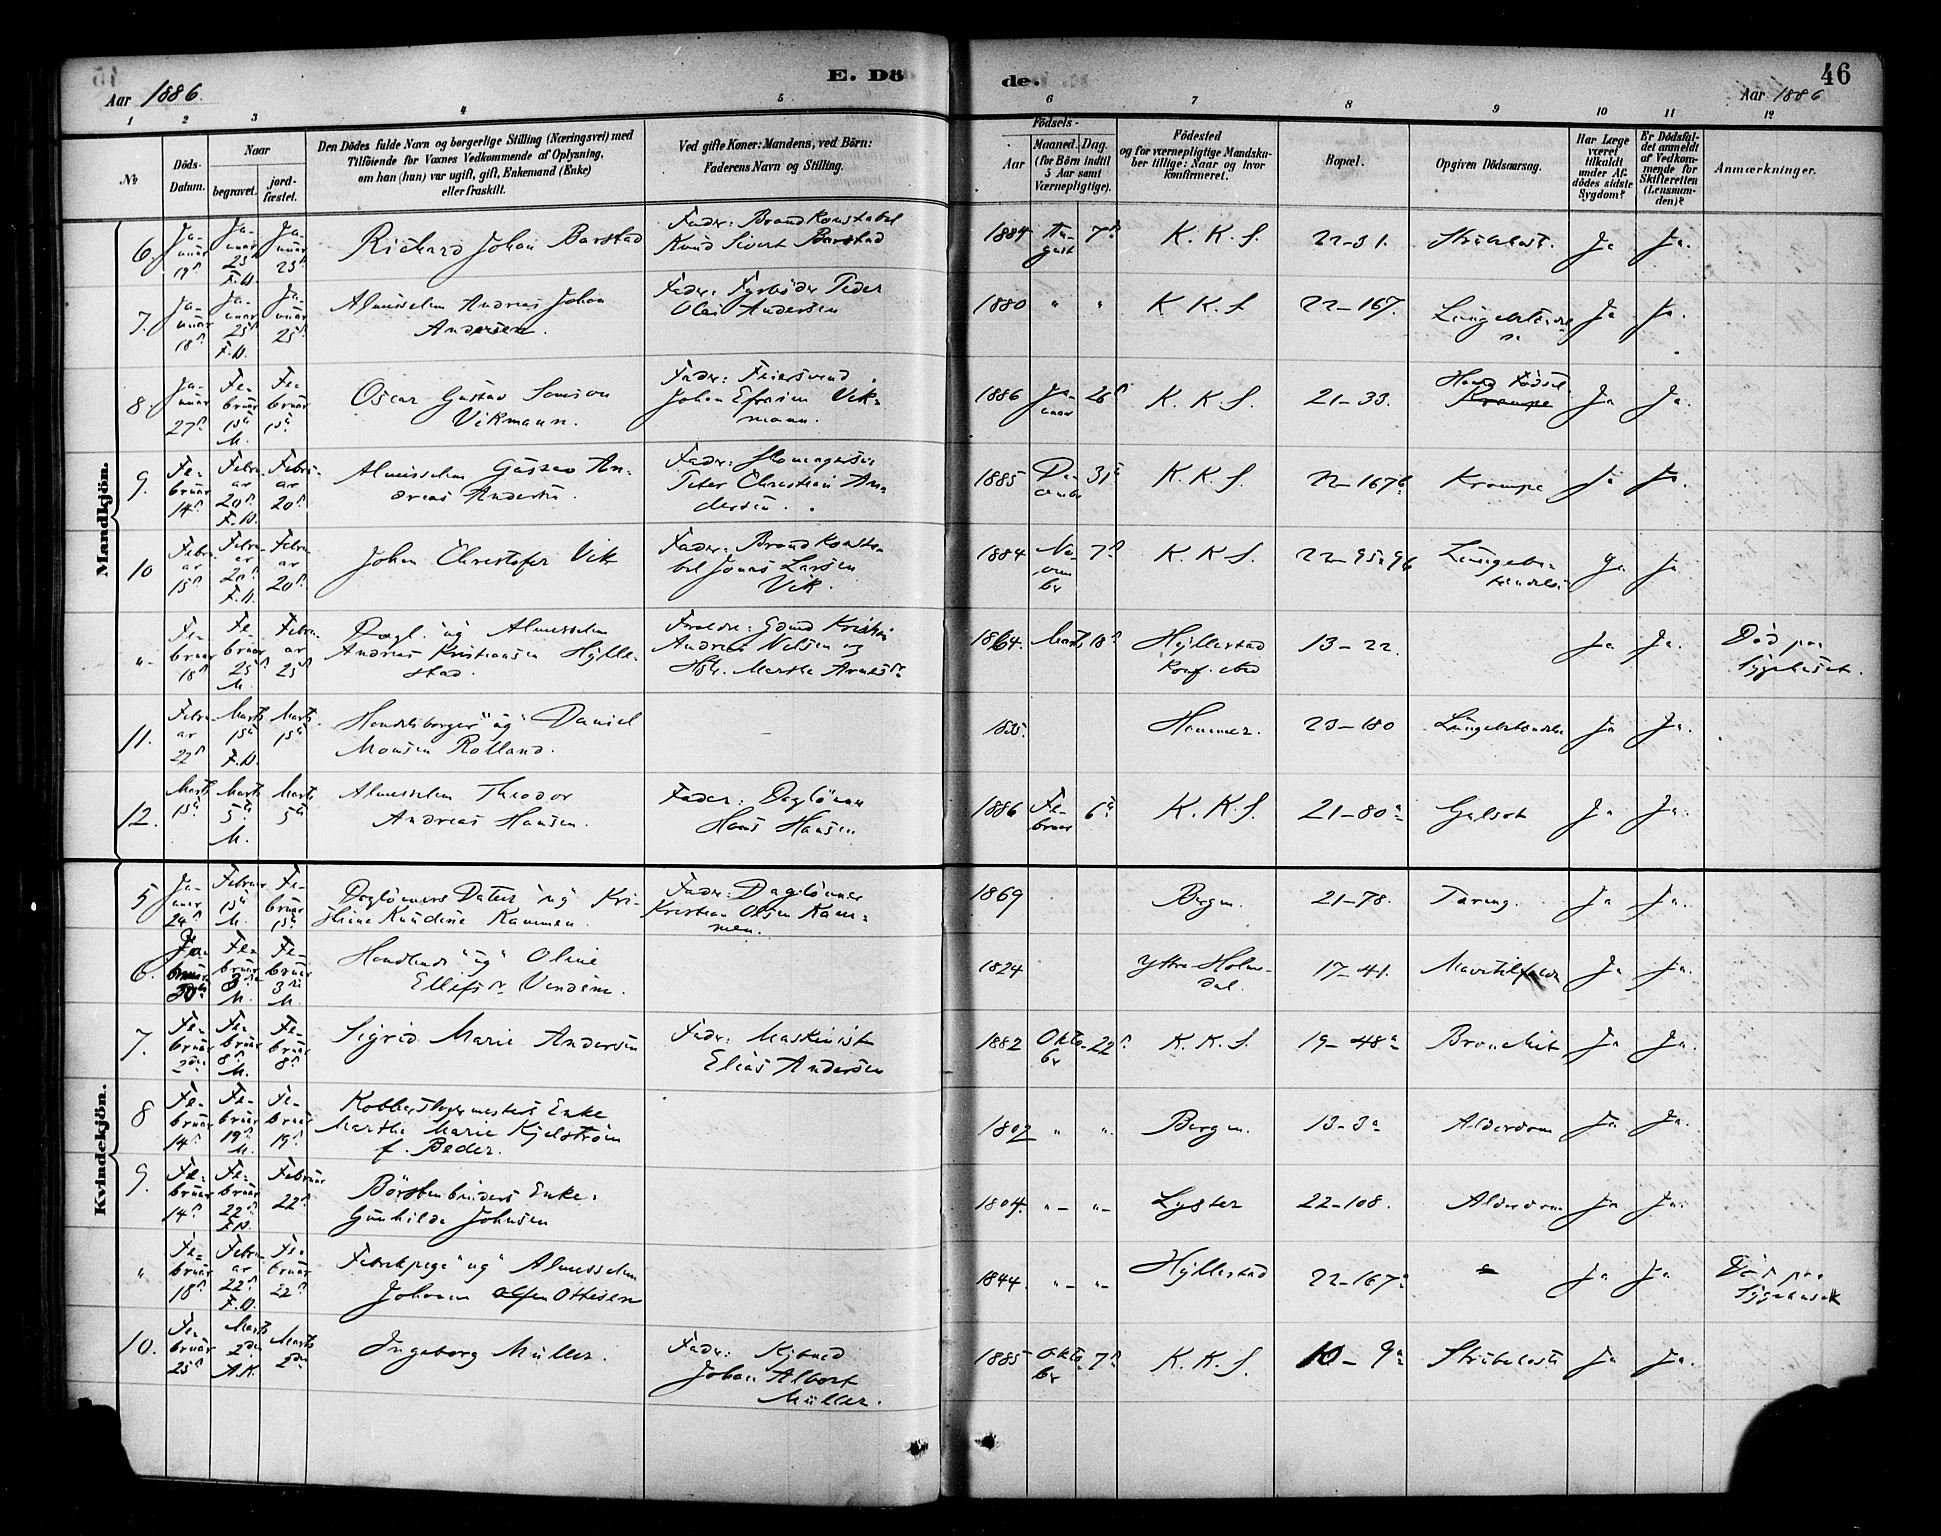 Aar 1886.
E. Dö
de.
46
Aar 1886
1 2 3 4 5 6 7 8 9 10 11 12
№
Döds-
Datum.
Naar
begravet.
jord-
fæstet.
Den Dödes fulde Navn og borgerlige Stilling (Næringsvei) med
Tilföiende for Voxnes Vedkommende af Oplysning,
om han (hun) var ugift, gift, Enkemand (Enke)
eller fraskilt.
Ved gifte Koner: Mandens, ved Börn:
Faderens Navn og Stilling.
Födsels-
Aar
Maaned. Dag.
(for Börn indtil
5 Aar samt
Værnepligtige).
Födested
og for værnepligtige Mandska-
ber tillige: Naar og hvor
konfirmeret.
Bopæl.
Opgiven Dödsaarsag.
Har Læge
været
tilkaldt
under Af-
dödes sidste
Sygdom?
Er Dödsfal-
det anmeldt
af Vedkom-
mende for
Skifteretten
(Lensman-
den)?
Anmærkninger.
Mandkjön.
6. Januar 19 Januar 25 F.D. Januar 25
Richard Johan Barstad
Fader: Brandkonstabel
Knud Sivert Barstad
1884 August 7 K. K. S. 22-31. Ja Ja.
7. Januar 18 Januar 25 F.D. Januar 25
Andreas Johan
Andersen.
Fader: Fyrböder Peder
Andersen
1880 " " K. K. S. 22-167. Ja Ja.
8. Januar 27 Februar 15 M. Februar 15
Oscar Gustav
Vikmann.
Fader: Feiersvend
Johan Efraim Vik-
mann.
1886 Januar 26 K. K. S. 21-33. Haard Födsel Krampe Ja Ja.
9. Februar 14 Februar 20 F.D. Februar 20
Gustav An-
dreas Andersen.
Fader:
Peter Christian An-
dersen.
1885 December 31 K. K. S. 22-167 Krampe Ja Ja.
10 Februar 15 Februar 20 F.D. Februar 20
Johan Christofer Vik
Fader: Brandkonsta-
bel Jonas Larsen
Vik.
1884 November 7 K. K. S. 22-95 96 Ja Ja
" Februar 18 Februar 25 M. Februar 25
Dagl. "ug"
Andreas Kristiansen Hylle-
stad.
Forældre: Gdmd Kristian
Andreas Nilsen og
Hst. Marthe
1864. Marts 18 Hyllestad
Konf. sted
13-22. Ja Ja. Död paa
Sygehuset.
11. Februar 22 Marts 15 F.D. Marts 15
Handelsborger "ug" Daniel
Monsen Rolland.
1835. Hammer. 23-180 Ja Ja.
12. Marts Marts 5 M. Marts 5
Theodor
Andreas Hansen.
Fader:
Hans Hansen
1886 Februar 6 K. K. S. 21-80a Gulsot Ja Ja.
Kvindekjön.
5 Januar 24 Februar 15 M. Februar 15
Daglönners Datter "ug" Kri-
stine Knudine Kammen.
Fader: Daglönner
Kristian Olsen Kam-
men.
1869 Bergen. 21-78. Tæring. Ja Ja.
6. Februar 3 M. Februar 3 M.
"ug" Oline
1824 Ytre Holme-
dal. 17-41. Ja Ja.
7. Februar 2den Februar 8 M. Februar 8
Sigrid Marie Andersen
Fader: Maskinist
Elias Andersen
1882 Oktober 22 K. K. S. 19-48a Bronchit Ja Ja.
8 Februar 14 Februar 19 M. Februar 19
Kobberslagermesters Enke
Marthe Marie Kjelström
f. Beder.
1802 " " Bergen. 13-3a Alderdom Ja Ja.
9. Februar 14 Februar 22 F.D. Februar 22
Börstenbinders Enke.
Gunhilde Johnsen
1804. " " Lyster 22-108. Alderdom Ja Ja.
" Februar 18 Februar 22 F.D. Februar 22
Fabrikpige "ug"
Johanne Ottesen
1844. " " Hyllestad 22-167a Ja Ja Död paa
Sygehuset
10. Februar 25 Marts 2den A.K. Marts 2den
Ingeborg Müller.
Fader: Kjbmd
Johan Albert
Müller.
1885 Oktober 7 K. K. S. 10-9a Ja Ja.